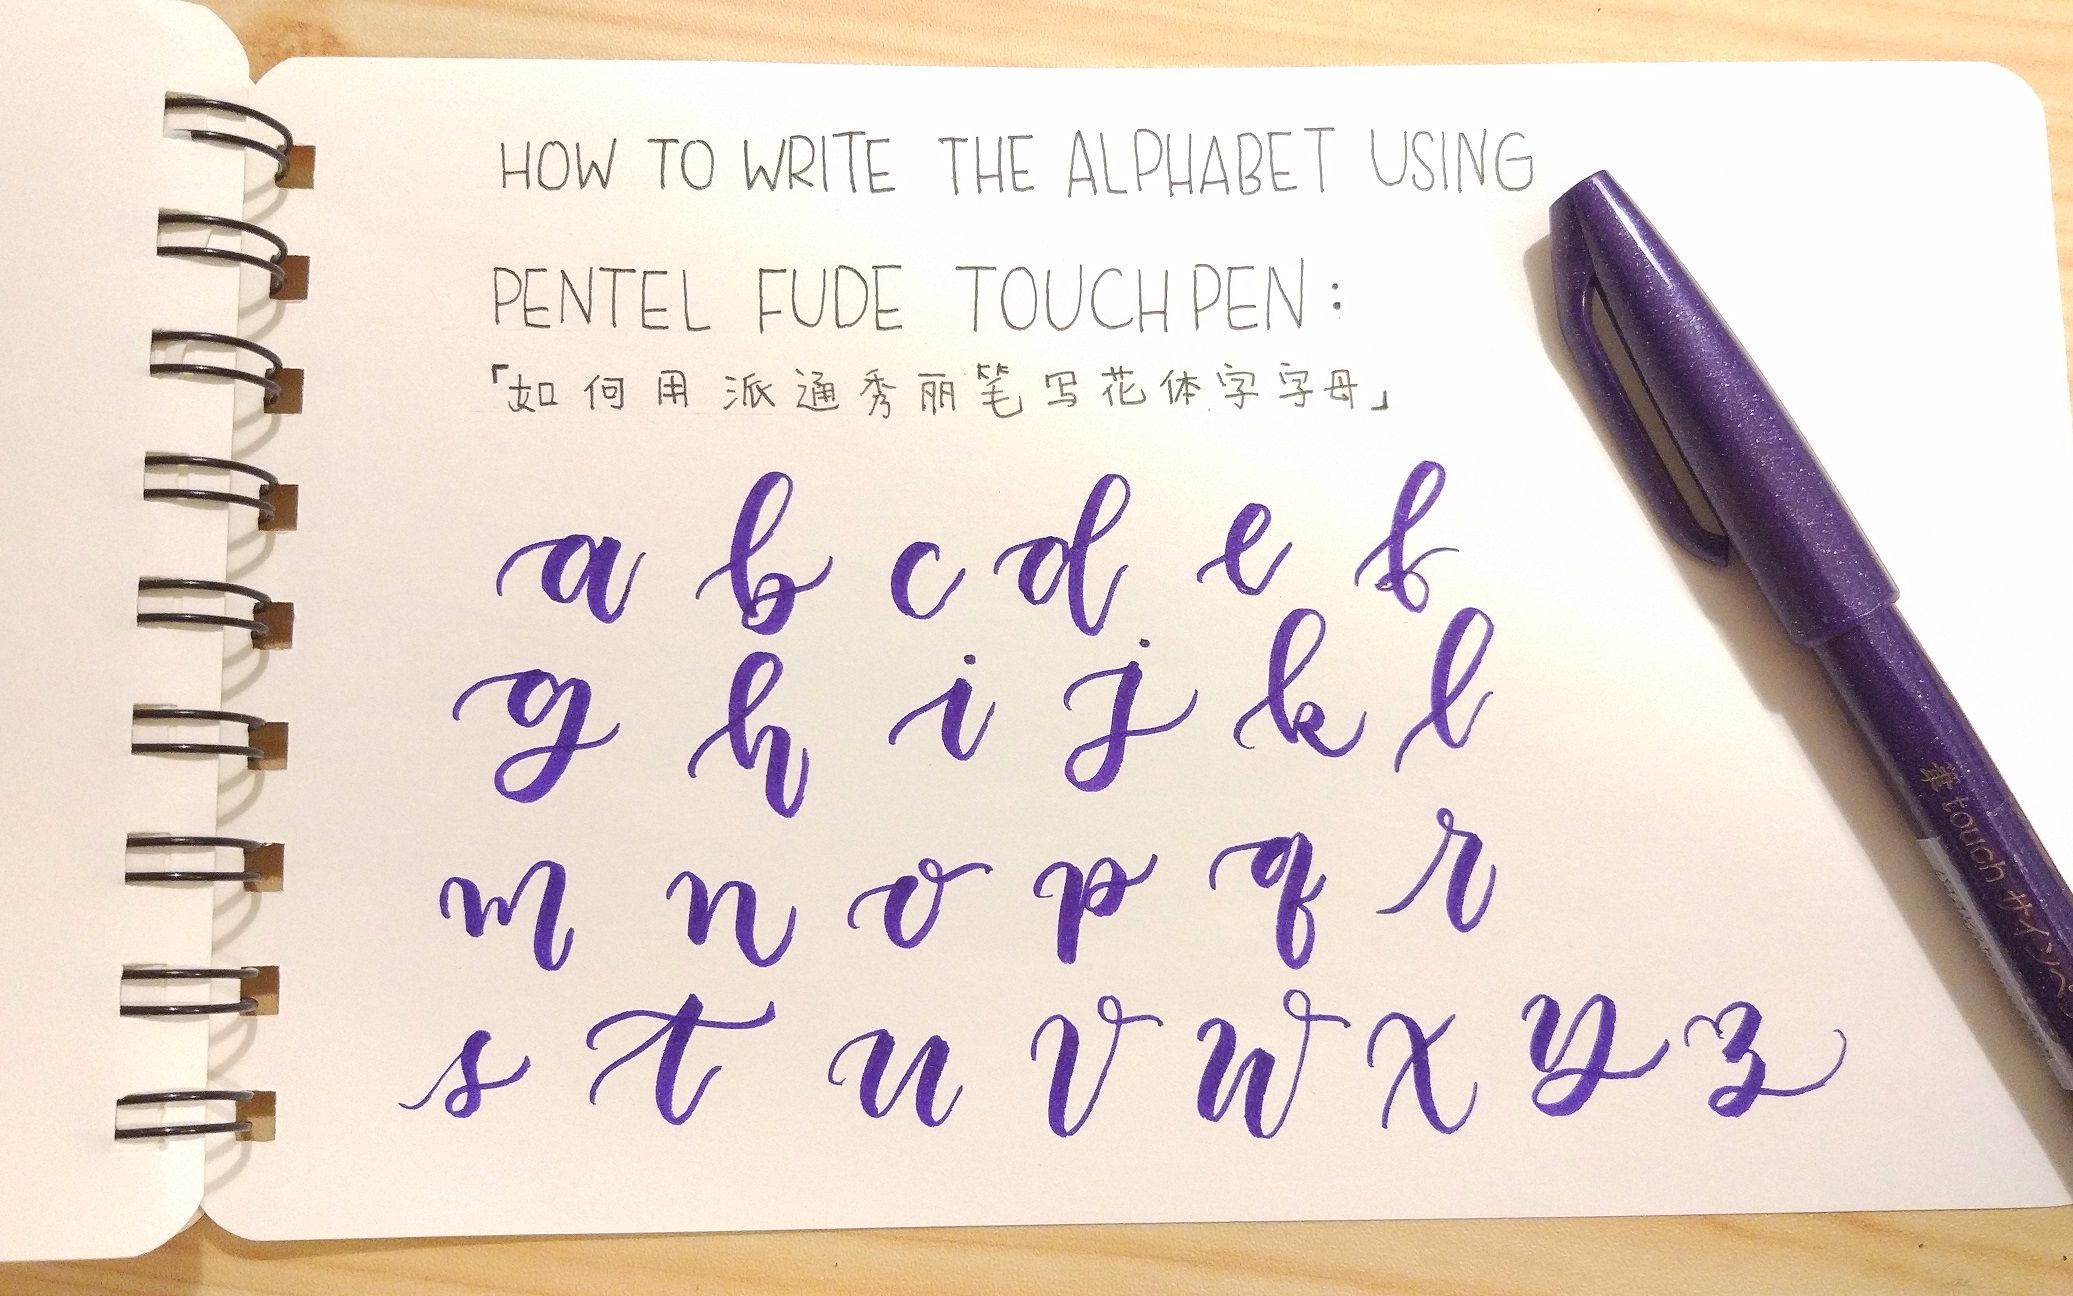 HOW TO WRITE THE ALPHABET USING
PENTEL FUDE TOUCH PEN:
「如何用派通秀丽笔写花体字字母」
a b c d e f
g h i j k l
m n o p q r
s t u v w x y z
筆touchサインペン